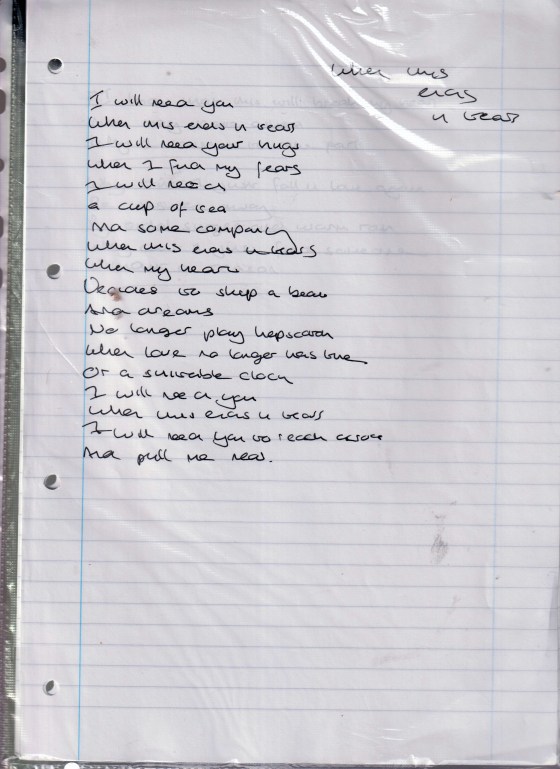 When this
ends
in tears
I will need you
When this ends in tears
I will need your hugs
When I find my fears
I will need
a cup of tea
And some company
When this ends in tears
When my heart
Decides to skip a beat
And dreams
No longer play hopscotch
When love no longer has time
Or a suitable clock
I will need you
When this ends in tears
I will need you to reach across
And pull me near.